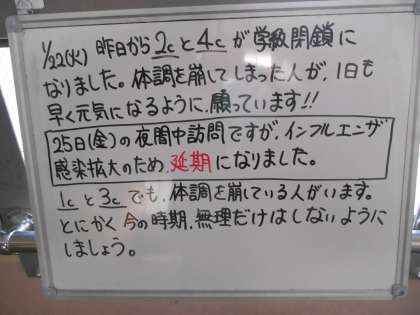 1/22(火) 昨日から2cと4cが学級閉鎖に
なりました。体調を崩してしまった人が、1日も
早く元気になるように、願っています!!
25日(金)の夜間中訪問ですが、インフルエンザ
感染拡大のため、延期になりました。
1cと3cでも、体調を崩している人がいます。
とにかく今の時期、無理だけはしないように
しましょう。